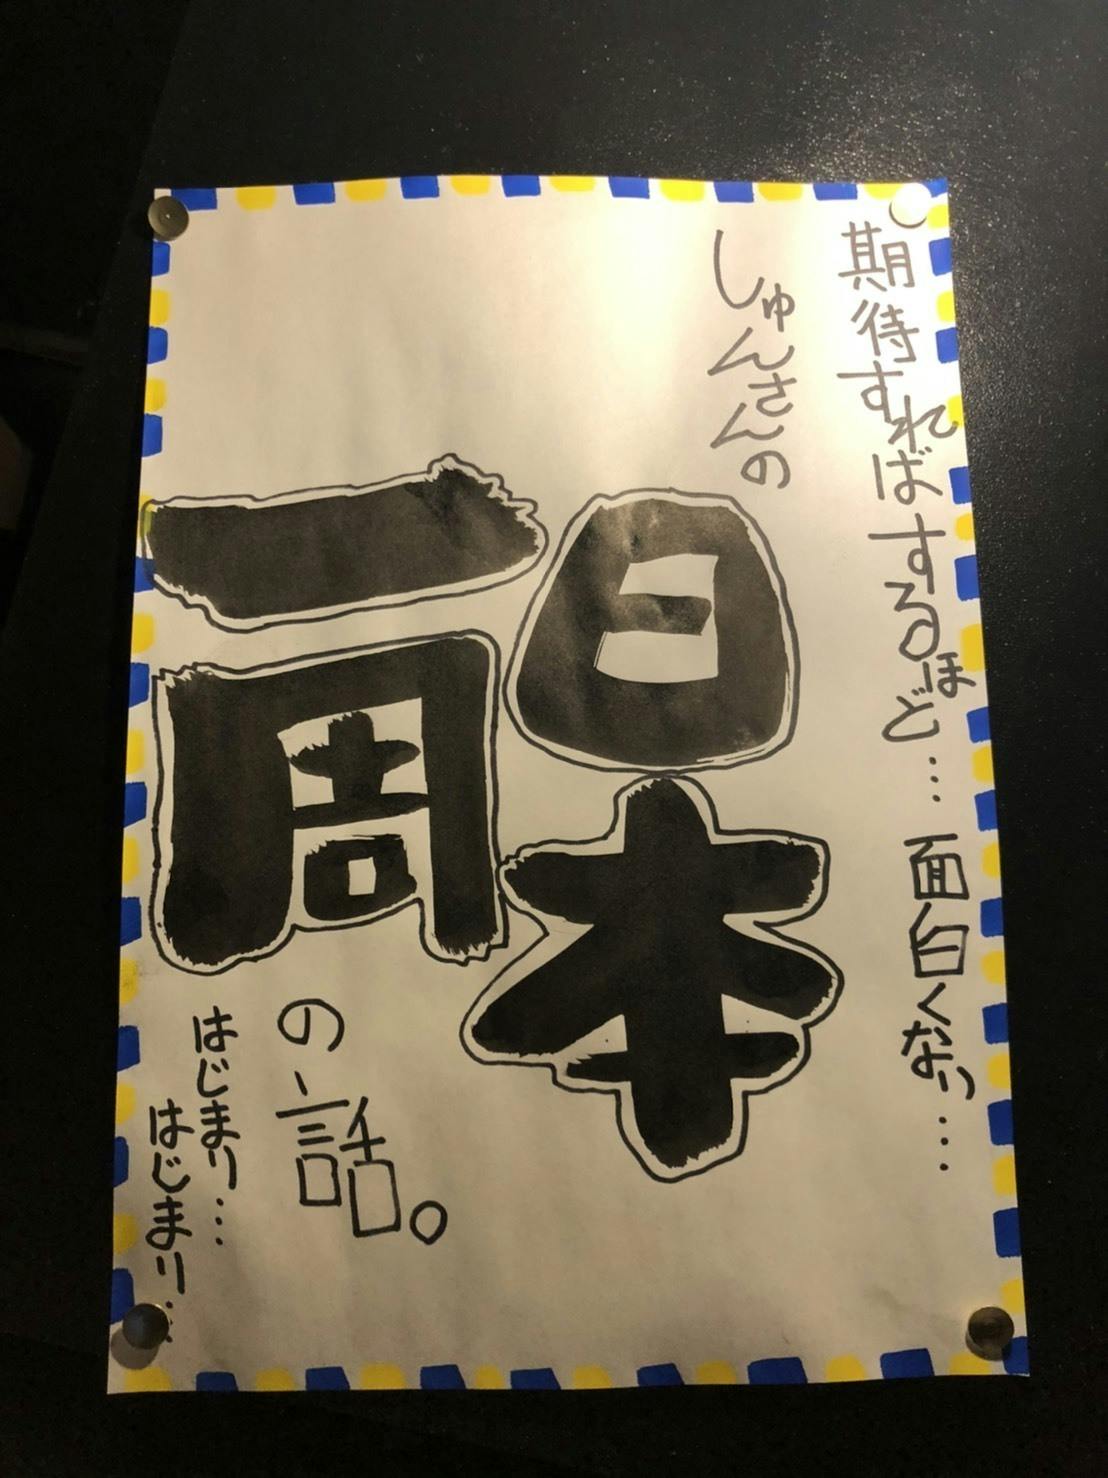 期待すればするほど… 面白くなり…
しゅんさんの
日本
一周
の話。
はじまり…
はじまり…